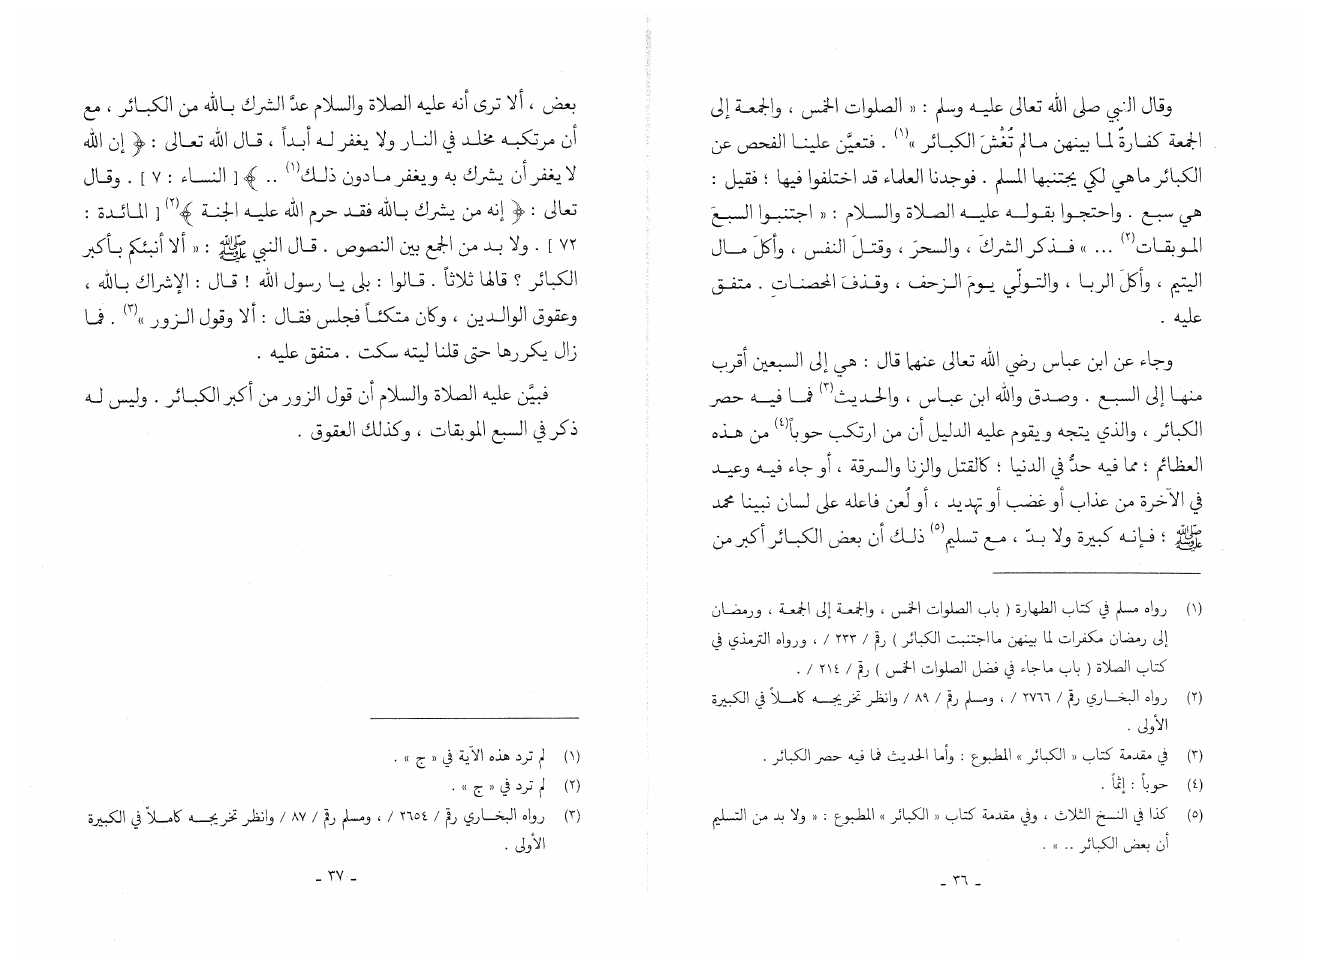 وقال النبي صلى الله تعالى عليه وسلم : « الصلوات الخمس ، والجمعة إلى
الجمعة كفارةٌ لما بينهن مالم تُغْشَ الكبائر »(١) . فتعيَّن علينا الفحص عن
الكبائر ماهي لكي يجتنبها المسلم . فوجدنا العلماء قد اختلفوا فيها ؛ فقيل :
هي سبع . واحتجوا بقوله عليه الصلاة والسلام : « اجتنبوا السبعَ
الموبقات(٢) ... » فذكر الشركَ ، والسحرَ ، وقتلَ النفس ، وأكلَ مال
اليتيم ، وأكلَ الربا ، والتولّي يومَ الزحف ، وقذفَ المحصناتِ . متفق
عليه .
وجاء عن ابن عباس رضي الله تعالى عنهما قال : هي إلى السبعين أقرب
منها إلى السبع . وصدق والله ابن عباس ، والحديث(٣) فما فيه حصر
الكبائر ، والذي يتجه ويقوم عليه الدليل أن من ارتكب حوباً(٤) من هذه
العظائم ؛ مما فيه حدٌّ في الدنيا ؛ كالقتل والزنا والسرقة ، أو جاء فيه وعيد
في الآخرة من عذاب أو غضب أو تهديد ، أو لُعن فاعله على لسان نبينا محمد
ﷺ ؛ فإنه كبيرة ولا بدّ ، مع تسليم(٥) ذلك أن بعض الكبائر أكبر من
(١) رواه مسلم في كتاب الطهارة ( باب الصلوات الخمس ، والجمعة إلى الجمعة ، ورمضان
إلى رمضان مكفرات لما بينهن مااجتنبت الكبائر ) رقم / ٢٣٣ / ، ورواه الترمذي في
كتاب الصلاة ( باب ماجاء في فضل الصلوات الخمس ) رقم / ٢١٤ / .
(٢) رواه البخاري رقم / ٢٧٦٦ / ، ومسلم رقم / ٨٩ / وانظر تخريجه كاملاً في الكبيرة
الأولى .
(٣) في مقدمة كتاب « الكبائر » المطبوع : وأما الحديث فما فيه حصر الكبائر .
(٤) حوباً : إثماً .
(٥) كذا في النسخ الثلاث ، وفي مقدمة كتاب « الكبائر » المطبوع : « ولا بد من التسليم
أن بعض الكبائر .. » .
ـ ٣٦ ـ
بعض ، ألا ترى أنه عليه الصلاة والسلام عدَّ الشرك بالله من الكبائر ، مع
أن مرتكبه مخلد في النار ولا يغفر له أبداً ، قال الله تعالى : ﴿ إن الله
لا يغفر أن يشرك به ويغفر مادون ذلك(١) .. ﴾ [ النساء : ٧ ] . وقال
تعالى : ﴿ إنه من يشرك بالله فقد حرم الله عليه الجنة ﴾(٢) [ المائدة :
٧٢ ] . ولا بد من الجمع بين النصوص . قال النبي ﷺ : « ألا أنبئكم بأكبر
الكبائر ؟ قالها ثلاثاً . قالوا : بلى يا رسول الله ! قال : الإشراك بالله ،
وعقوق الوالدين ، وكان متكئاً فجلس فقال : ألا وقول الزور »(٣) . فما
زال يكررها حتى قلنا ليته سكت . متفق عليه .
فبيَّن عليه الصلاة والسلام أن قول الزور من أكبر الكبائر . وليس له
ذكر في السبع الموبقات ، وكذلك العقوق .
(١) لم ترد هذه الآية في « ج » .
(٢) لم ترد في « ج » .
(٣) رواه البخاري رقم / ٢٦٥٤ / ، ومسلم رقم / ٨٧ / وانظر تخريجه كاملاً في الكبيرة
الأولى .
ـ ٣٧ ـ